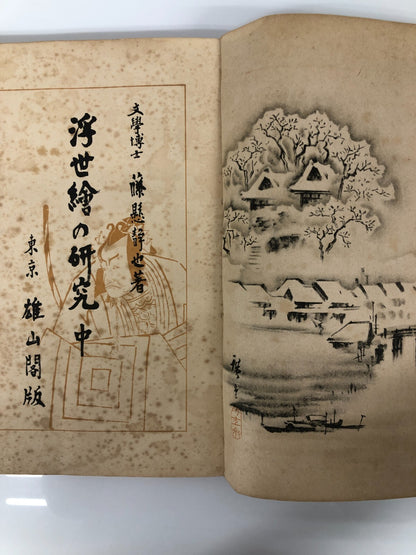 文學博士 藤懸静也著
浮世繪の研究 中
東京 雄山閣版